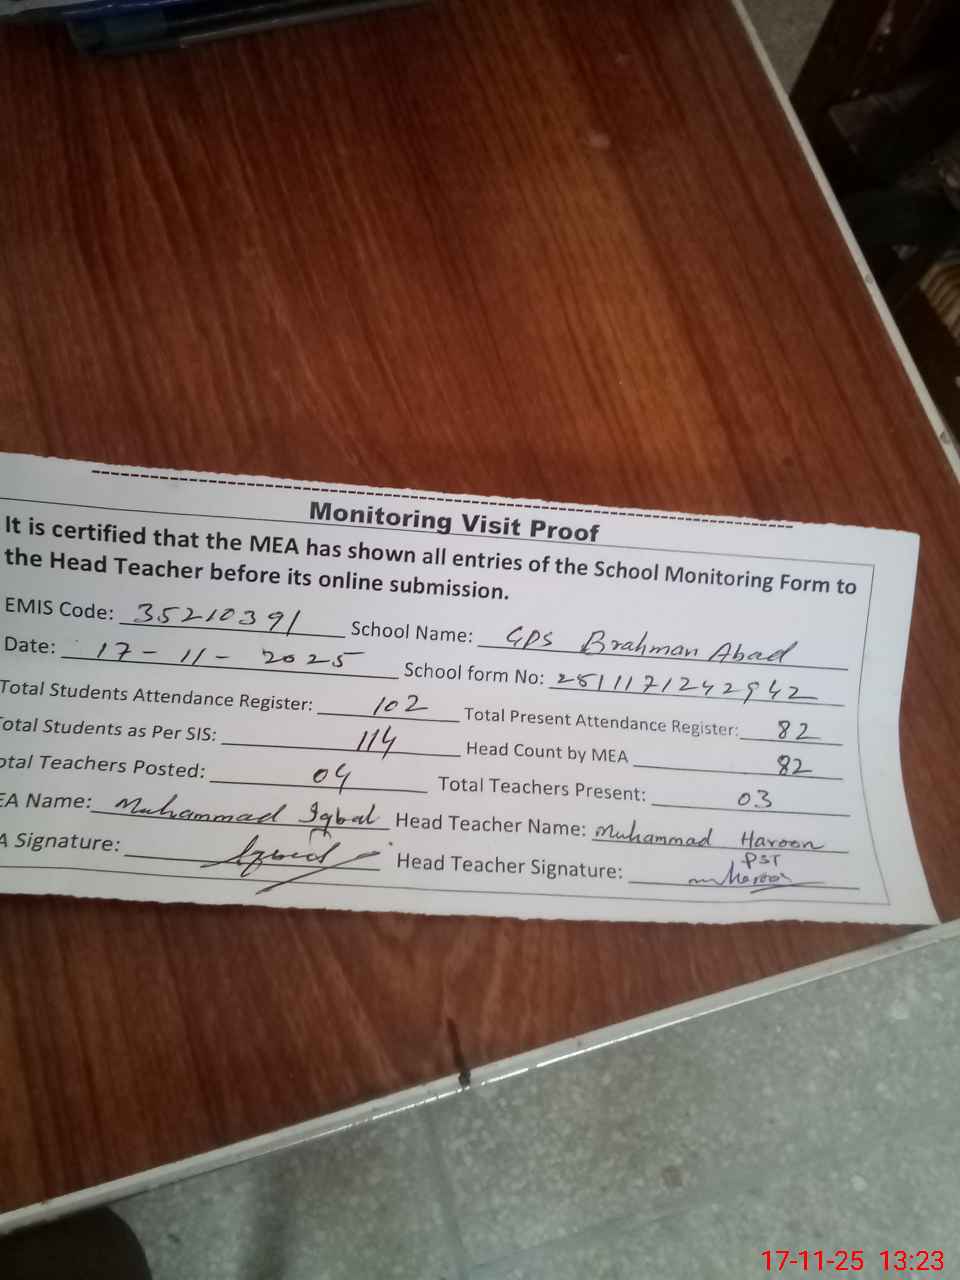 Monitoring Visit Proof
It is certified that the MEA has shown all entries of the School Monitoring Form to
the Head Teacher before its online submission.
EMIS Code: 35210391 School Name: GPS Brahman Abad
Date: 17-11-2025 School form No: 2511171242942
Total Students Attendance Register: 102 Total Present Attendance Register: 82
otal Students as Per SIS: 114 Head Count by MEA 82
otal Teachers Posted: 04 Total Teachers Present: 03
EA Name: Muhammad Iqbal Head Teacher Name: Muhammad Haroon
PST
A Signature: Iqbal Head Teacher Signature: mharoon
17-11-25 13:23